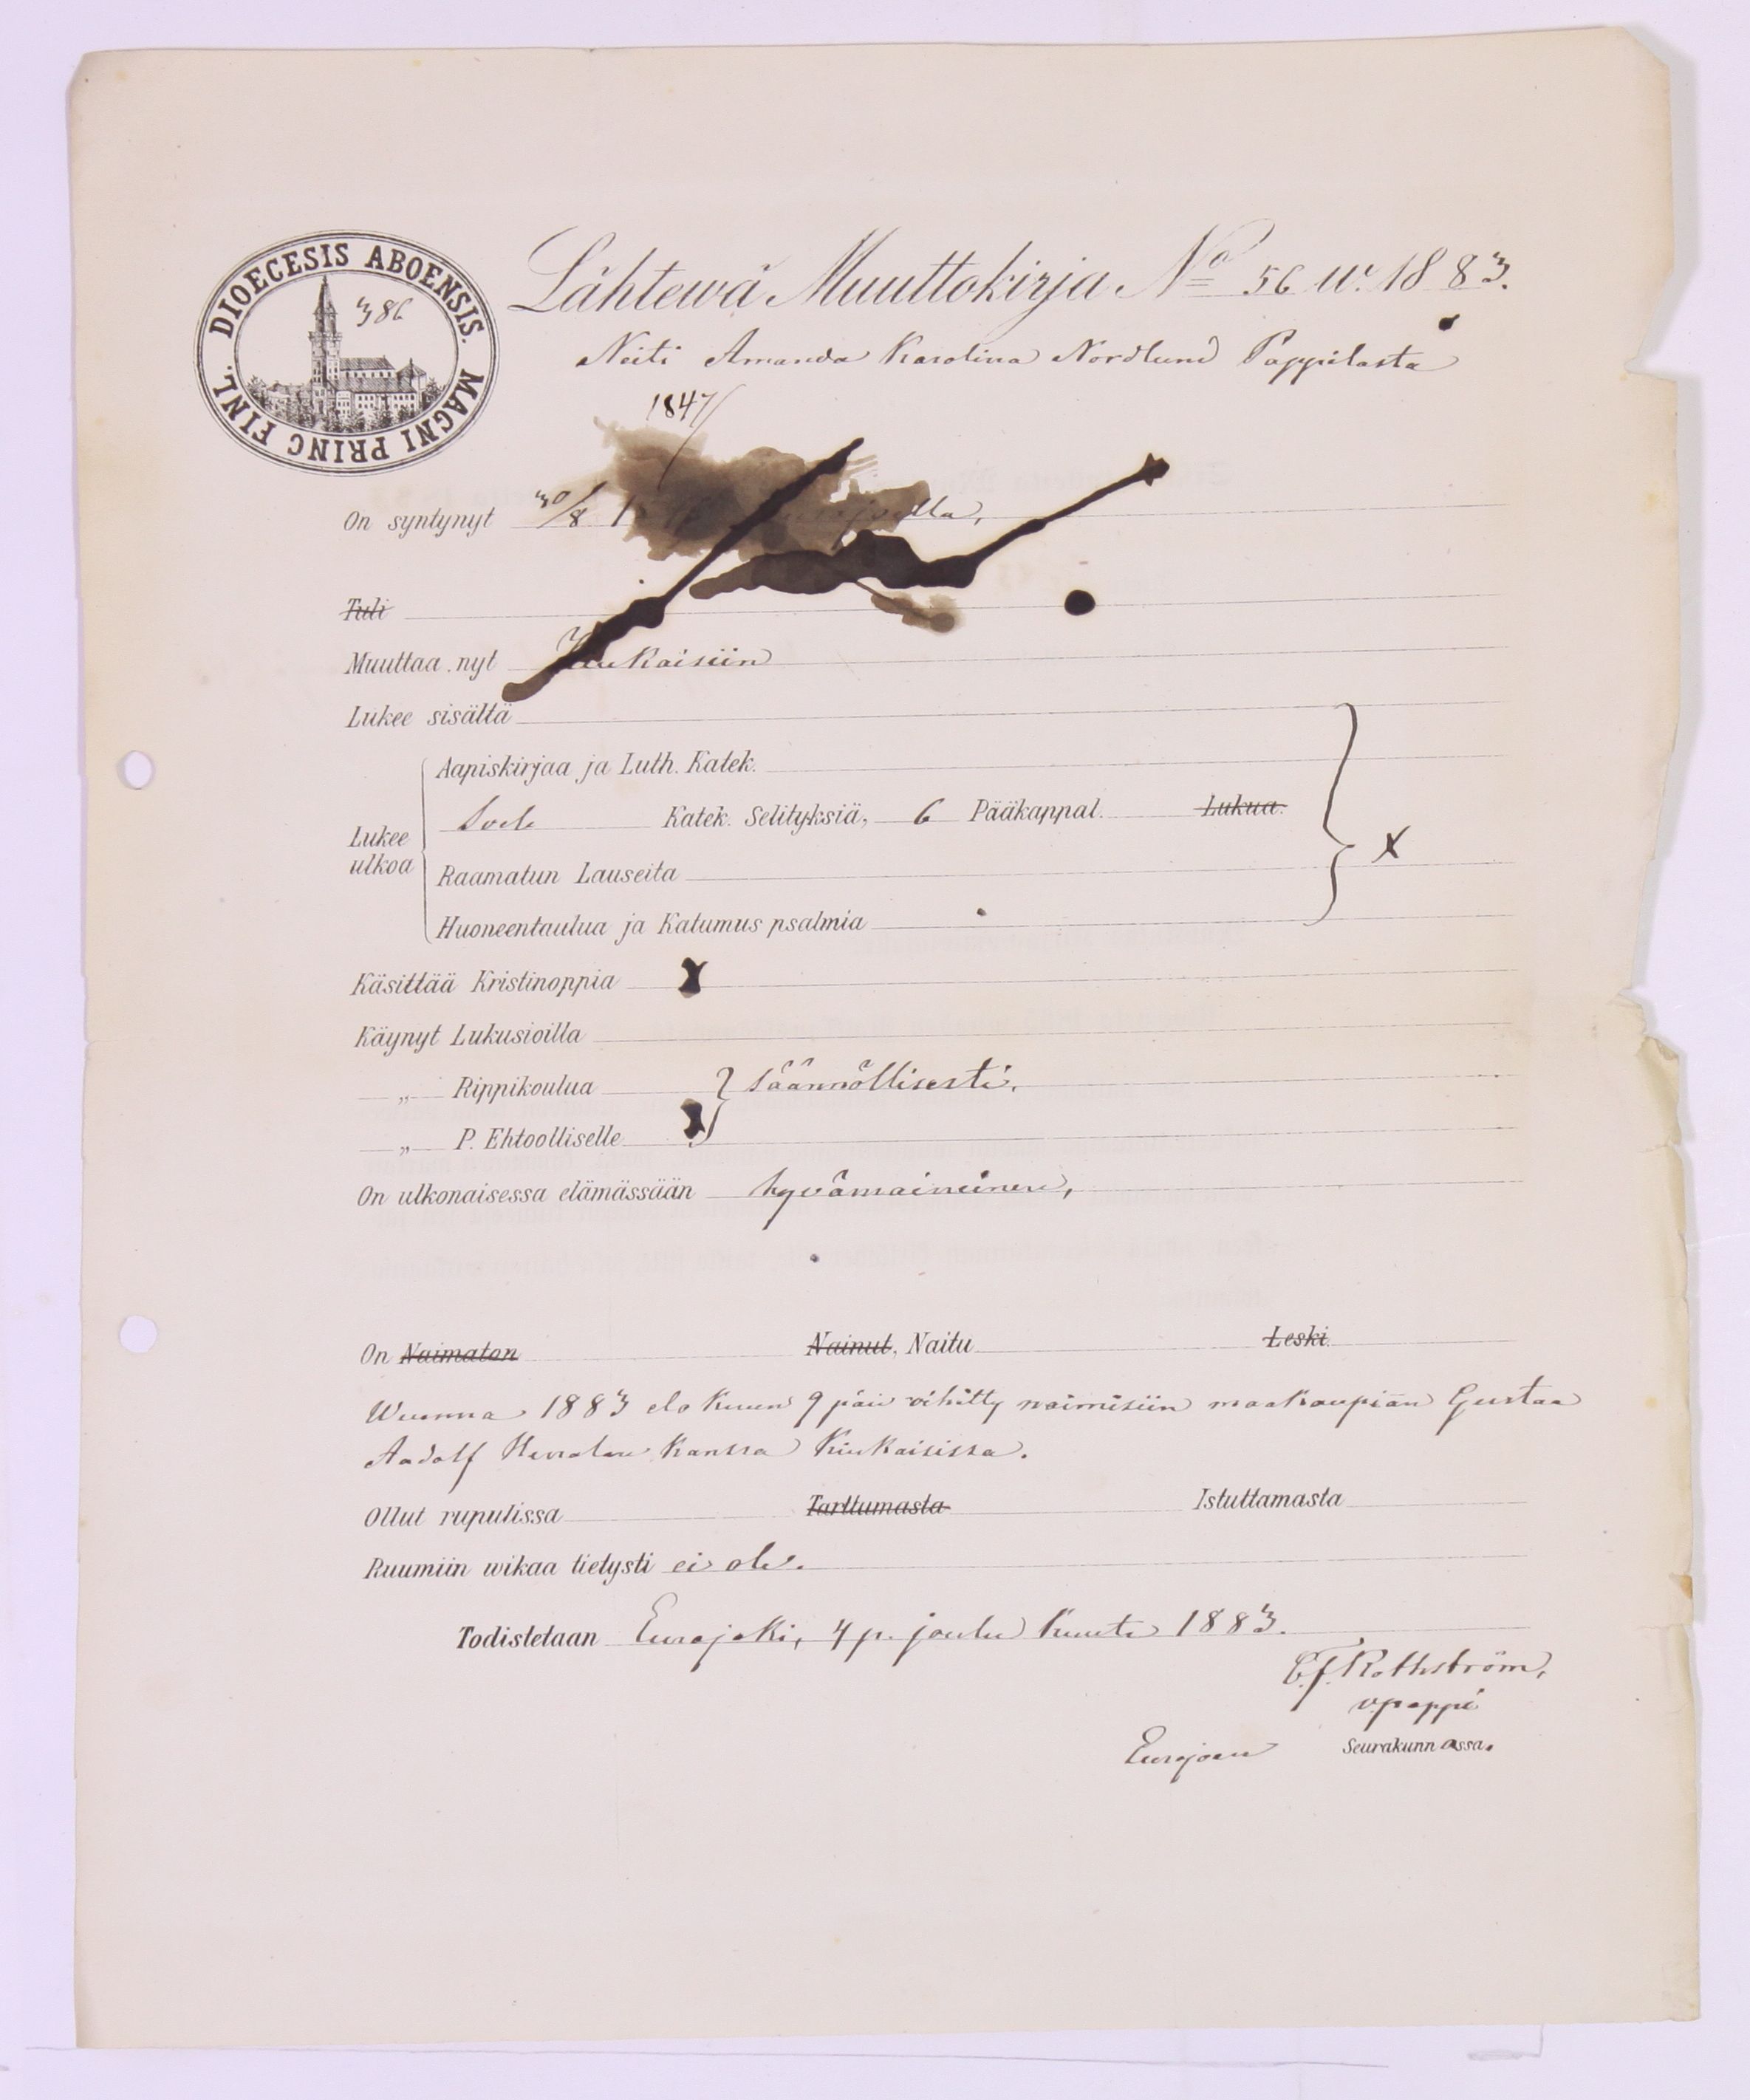 DIOECESIS ABOENSIS. MAGNI PRINC FINL.
386
Lähtewä Muuttokirja No 56 w. 1883.
Neiti Amanda Karolina Nordlund Pappilasta
1847
On syntynyt 30/8
Tuli
Muuttaa nyt Kiukaisiin
Lukee sisältä
Lukee ulkoa
Aapiskirjaa ja Luth. Katek.
Katek. Selityksiä, 6 Pääkappal. Lukua.
x
Raamatun Lauseita
Huoneentaulua ja Katumus psalmia
Käsittää Kristinoppia x
Käynyt Lukusioilla
„ Rippikoulua säännöllisesti.
„ P. Ehtoolliselle
On ulkonaisessa elämässään hyvämaineinen,
On Naimaton Nainut, Naitu Leski.
Wuonna 1883 elokuun 9 päiv vihitty naimisiin maakaupiān Gustaa
Aadolf kanssa Kiukaisissa.
Ollut rupulissa Tarttumasta Istuttamasta
Ruumiin wikaa tietysti ei ole.
Todistetaan Eurajoki, 4 p. joulu kuuta 1883.
C. F. Rothström,
v.pappi
Eurajoen Seurakunnassa.